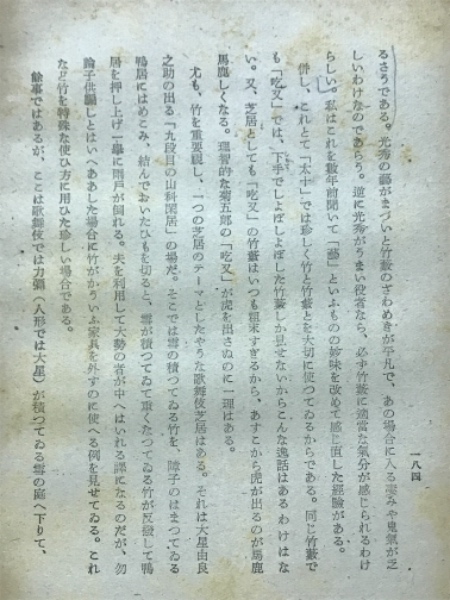 一八四
るさうである。光秀の藝がまづいと竹藪のざわめきが平凡で、あの場合に入る凄みや鬼氣が乏
しいわけなのであらう。逆に光秀がうまい役者なら、必ず竹藪に適當な氣分が感じられるわけ
らしい。私はこれを數年前聞いて「藝」といふものの妙味を改めて感じ直した經驗がある。
併し、これとて「太十」では珍しく竹と竹藪とを大切に使つてゐるからである。同じ竹藪で
も「吃又」では、下手でしよぼしよぼした竹藪しか見せないからこんな逸話はあるわけはな
い。又、芝居としても「吃又」の竹藪はいつも粗末すぎるから、あすこから虎が出るのが馬鹿
馬鹿しくなる。理智的な菊五郎の「吃又」が虎を出さぬのに一理はある。
尤も、竹を重要視し、一つの芝居のテーマとしたやうな歌舞伎芝居はある。それは大星由良
之助の出る「九段目の山科閑居」の場だ。そこでは雪の積つてゐる竹を、障子のはまつてゐる
鴨居にはめこみ、結んでおいたひもを切ると、雪が積つてゐて重くなつてゐる竹が反撥して鴨
居を押し上げ一擧に雨戸が倒れる。夫を利用して大勢の者が中へはいれる譯になるのだが、勿
論子供騙しとはいへああした場合に竹がかういふ家具を外すのに使へる例を見せてゐる。これ
など竹を特殊な使ひ方に用ひた珍しい場合である。
餘事ではあるが、ここは歌舞伎では力彌（人形では大星）が積つてゐる雪の庭へ下りて、